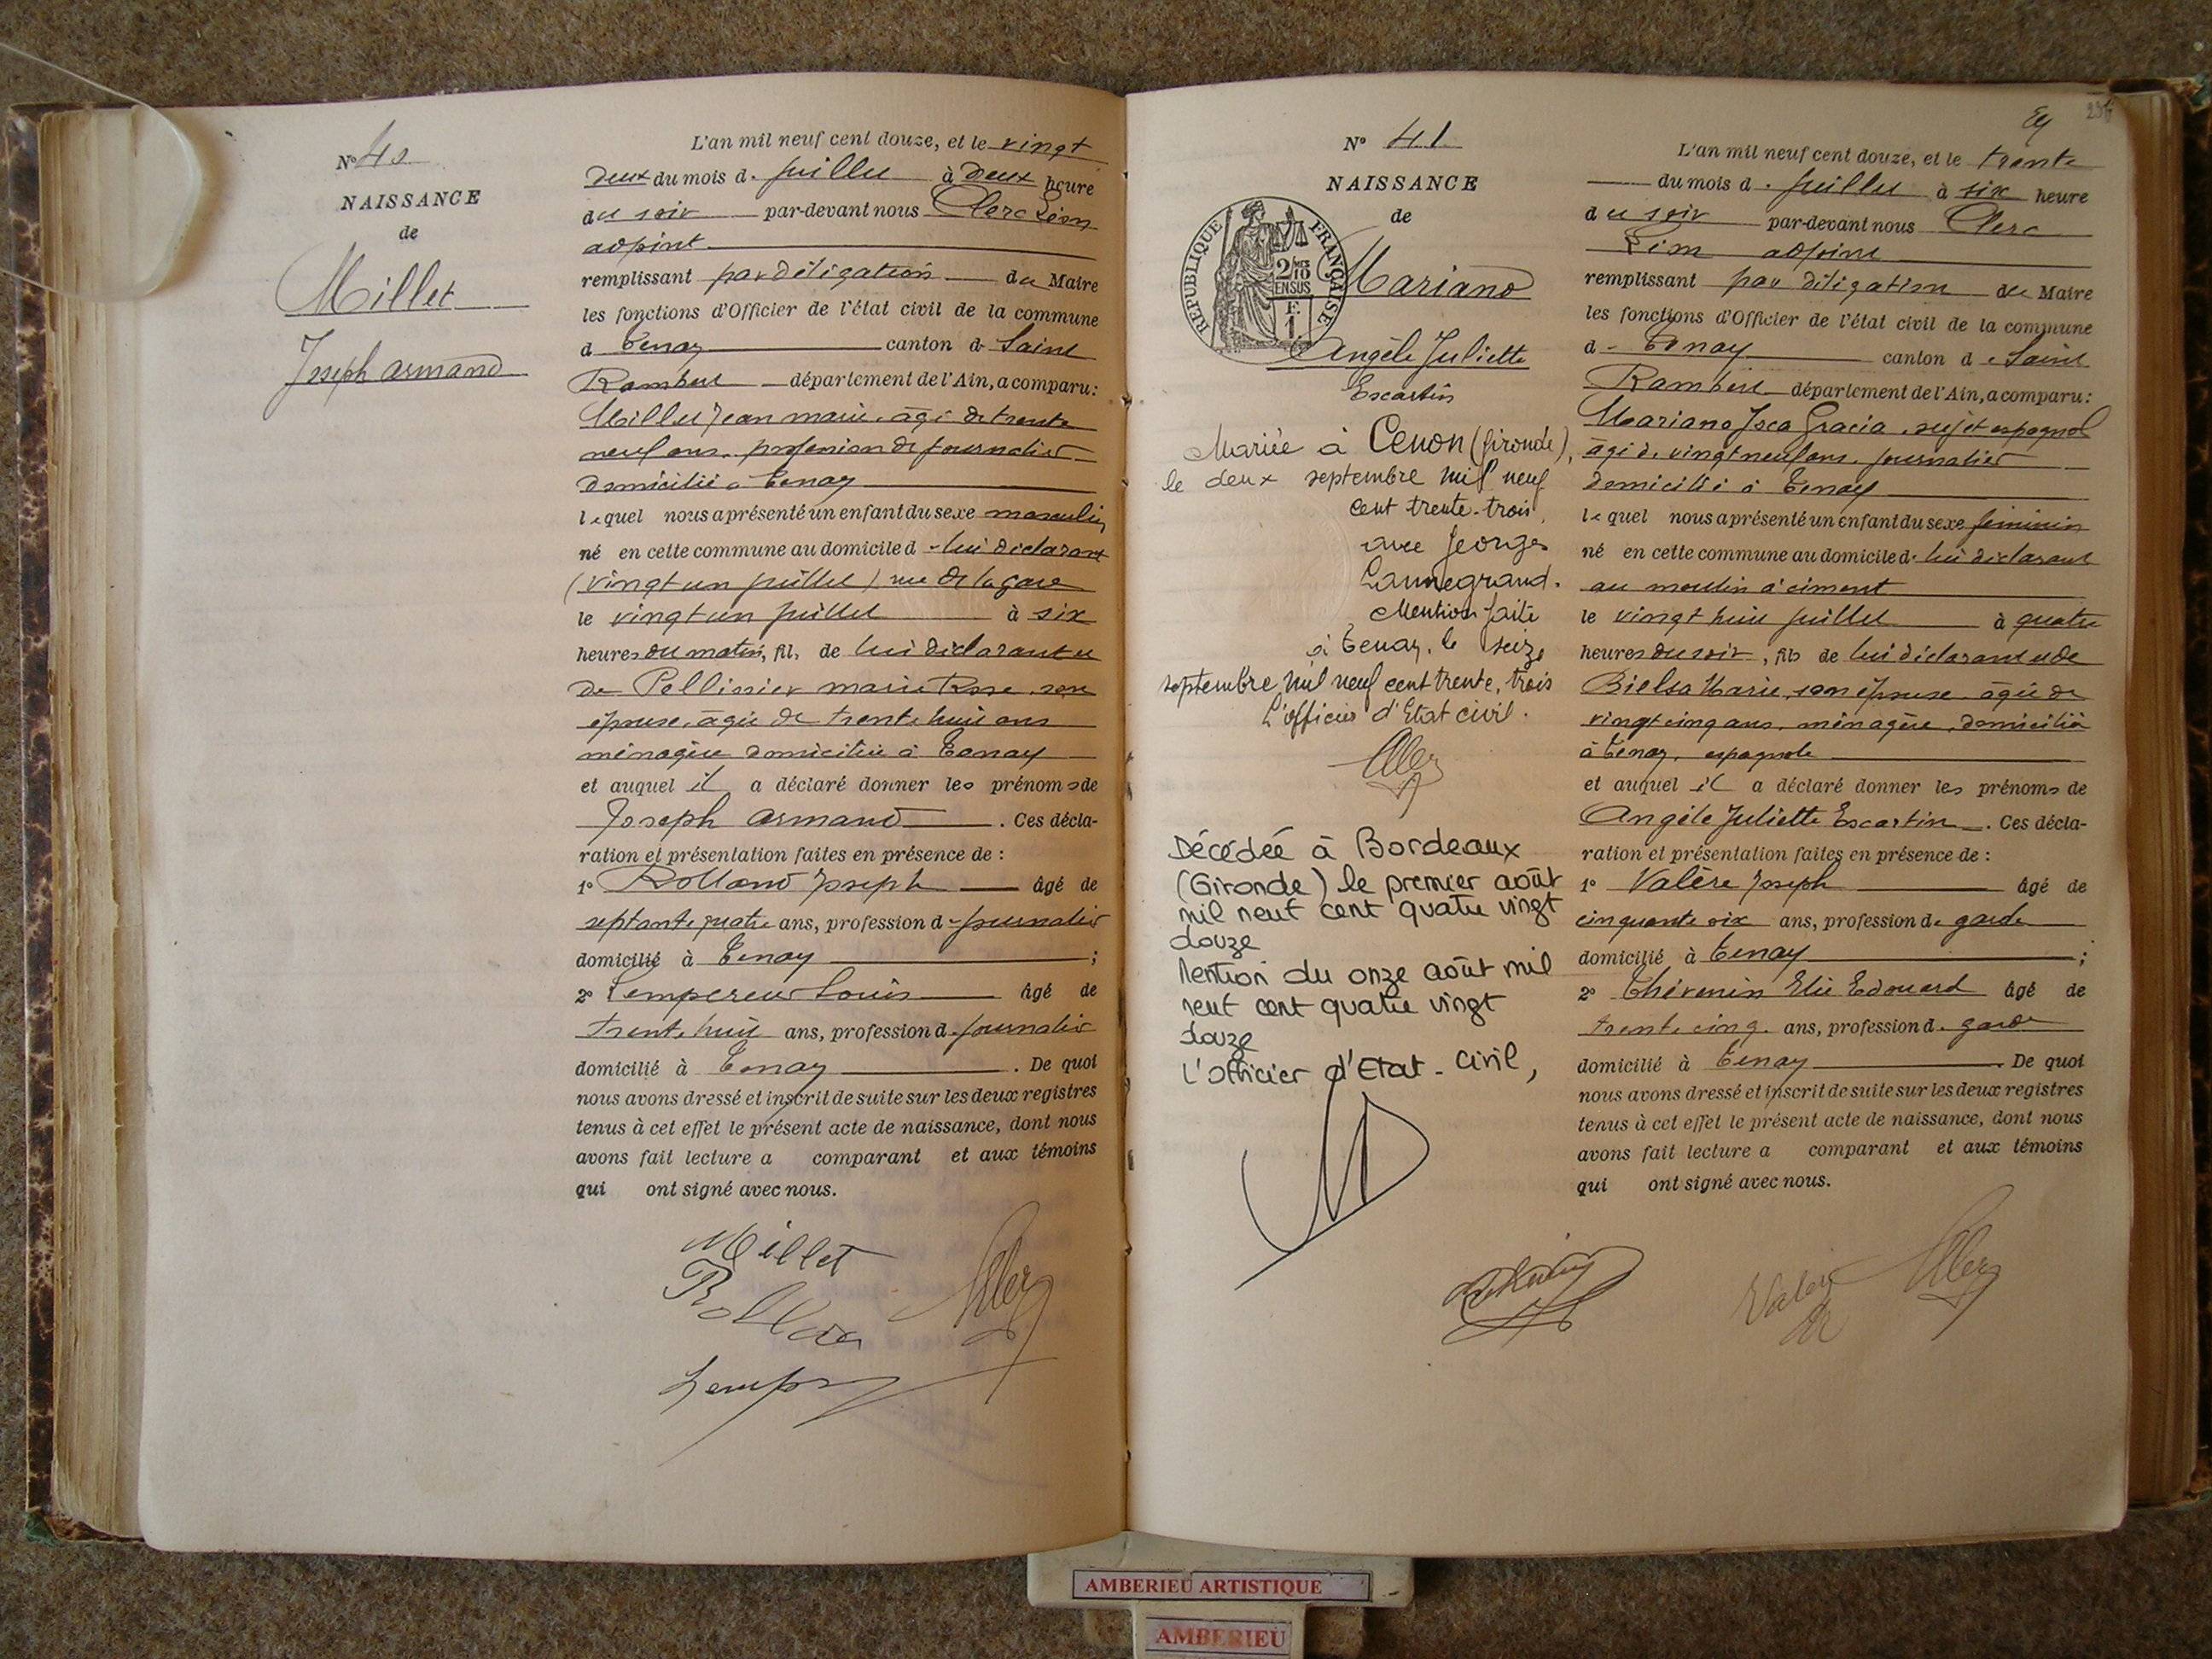 N° 40
NAISSANCE
de
Millet
Joseph Armand
L'an mil neuf cent douze, et le vingt
deux du mois d. Juillet à deux heure
du soir par-devant nous Clerc Léon
adjoint
remplissant par délégation du Maire
les fonctions d'Officier de l'état civil de la commune
d Tenay canton d. Saint
Rambert département de l'Ain, a comparu:
Millet Jean Marie, âgé de trente
neuf ans, profession de journalier
domicilié à Tenay
lequel nous a présenté un enfant du sexe masculin,
né en cette commune au domicile d. lui déclarant
(vingt un juillet) rue de la gare
le vingt un juillet à six
heures du matin, fils de lui déclarant et
de Pellissier Marie Rose, son
épouse, âgée de trente huit ans
ménagère domiciliée à Tenay
et auquel il a déclaré donner les prénoms de
Joseph Armand. Ces décla-
ration et présentation faites en présence de :
1° Rolland Joseph âgé de
septante quatre ans, profession d. journalier
domicilié à Tenay ;
2° Lempereur Louis âgé de
trente huit ans, profession d. journalier
domicilié à Tenay. De quoi
nous avons dressé et inscrit de suite sur les deux registres
tenus à cet effet le présent acte de naissance, dont nous
avons fait lecture a comparant et aux témoins
qui ont signé avec nous.
Millet
N° 41
NAISSANCE
de
RÉPUBLIQUE FRANÇAISE
2/10
EN SUS
F.
1
Mariano
Angèle Juliette
Escartin
Mariée à Cenon (Gironde),
le deux septembre mil neuf
cent trente-trois,
avec Georges
Lannegrand.
Mention faite
à Tenay, le seize
septembre mil neuf cent trente, trois
L'officier d'Etat civil.
Décédée à Bordeaux
(Gironde) le premier août
mil neuf cent quatre vingt
douze
Mention du onze août mil
neuf cent quatre vingt
douze
L'officier d'Etat-Civil,
236
L'an mil neuf cent douze, et le trente
du mois d. Juillet à six heure
du soir par-devant nous Clerc
Léon adjoint
remplissant par délégation du Maire
les fonctions d'Officier de l'état civil de la commune
d. Tenay canton de Saint
Rambert département de l'Ain, a comparu:
Mariano Gracia, sujet espagnol
âgé de vingt neuf ans, journalier
domicilié à Tenay
lequel nous a présenté un enfant du sexe féminin
né en cette commune au domicile d. lui déclarant
au moulin à ciment
le vingt huit juillet à quatre
heures du soir, fils de lui déclarant et de
Bielsa Marie, son épouse âgée de
vingt cinq ans, ménagère, domiciliée
à Tenay, espagnole
et auquel il a déclaré donner les prénoms de
Angèle Juliette Escartin. Ces décla-
ration et présentation faites en présence de :
1° Valère Joseph âgé de
cinquante six ans, profession de garde
domicilié à Tenay ;
2° Thévenin Elie Edouard âgé de
trente cinq. ans, profession d. garde
domicilié à Tenay. De quoi
nous avons dressé et inscrit de suite sur les deux registres
tenus à cet effet le présent acte de naissance, dont nous
avons fait lecture a comparant et aux témoins
qui ont signé avec nous.
AMBERIEU ARTISTIQUE
AMBERIEU